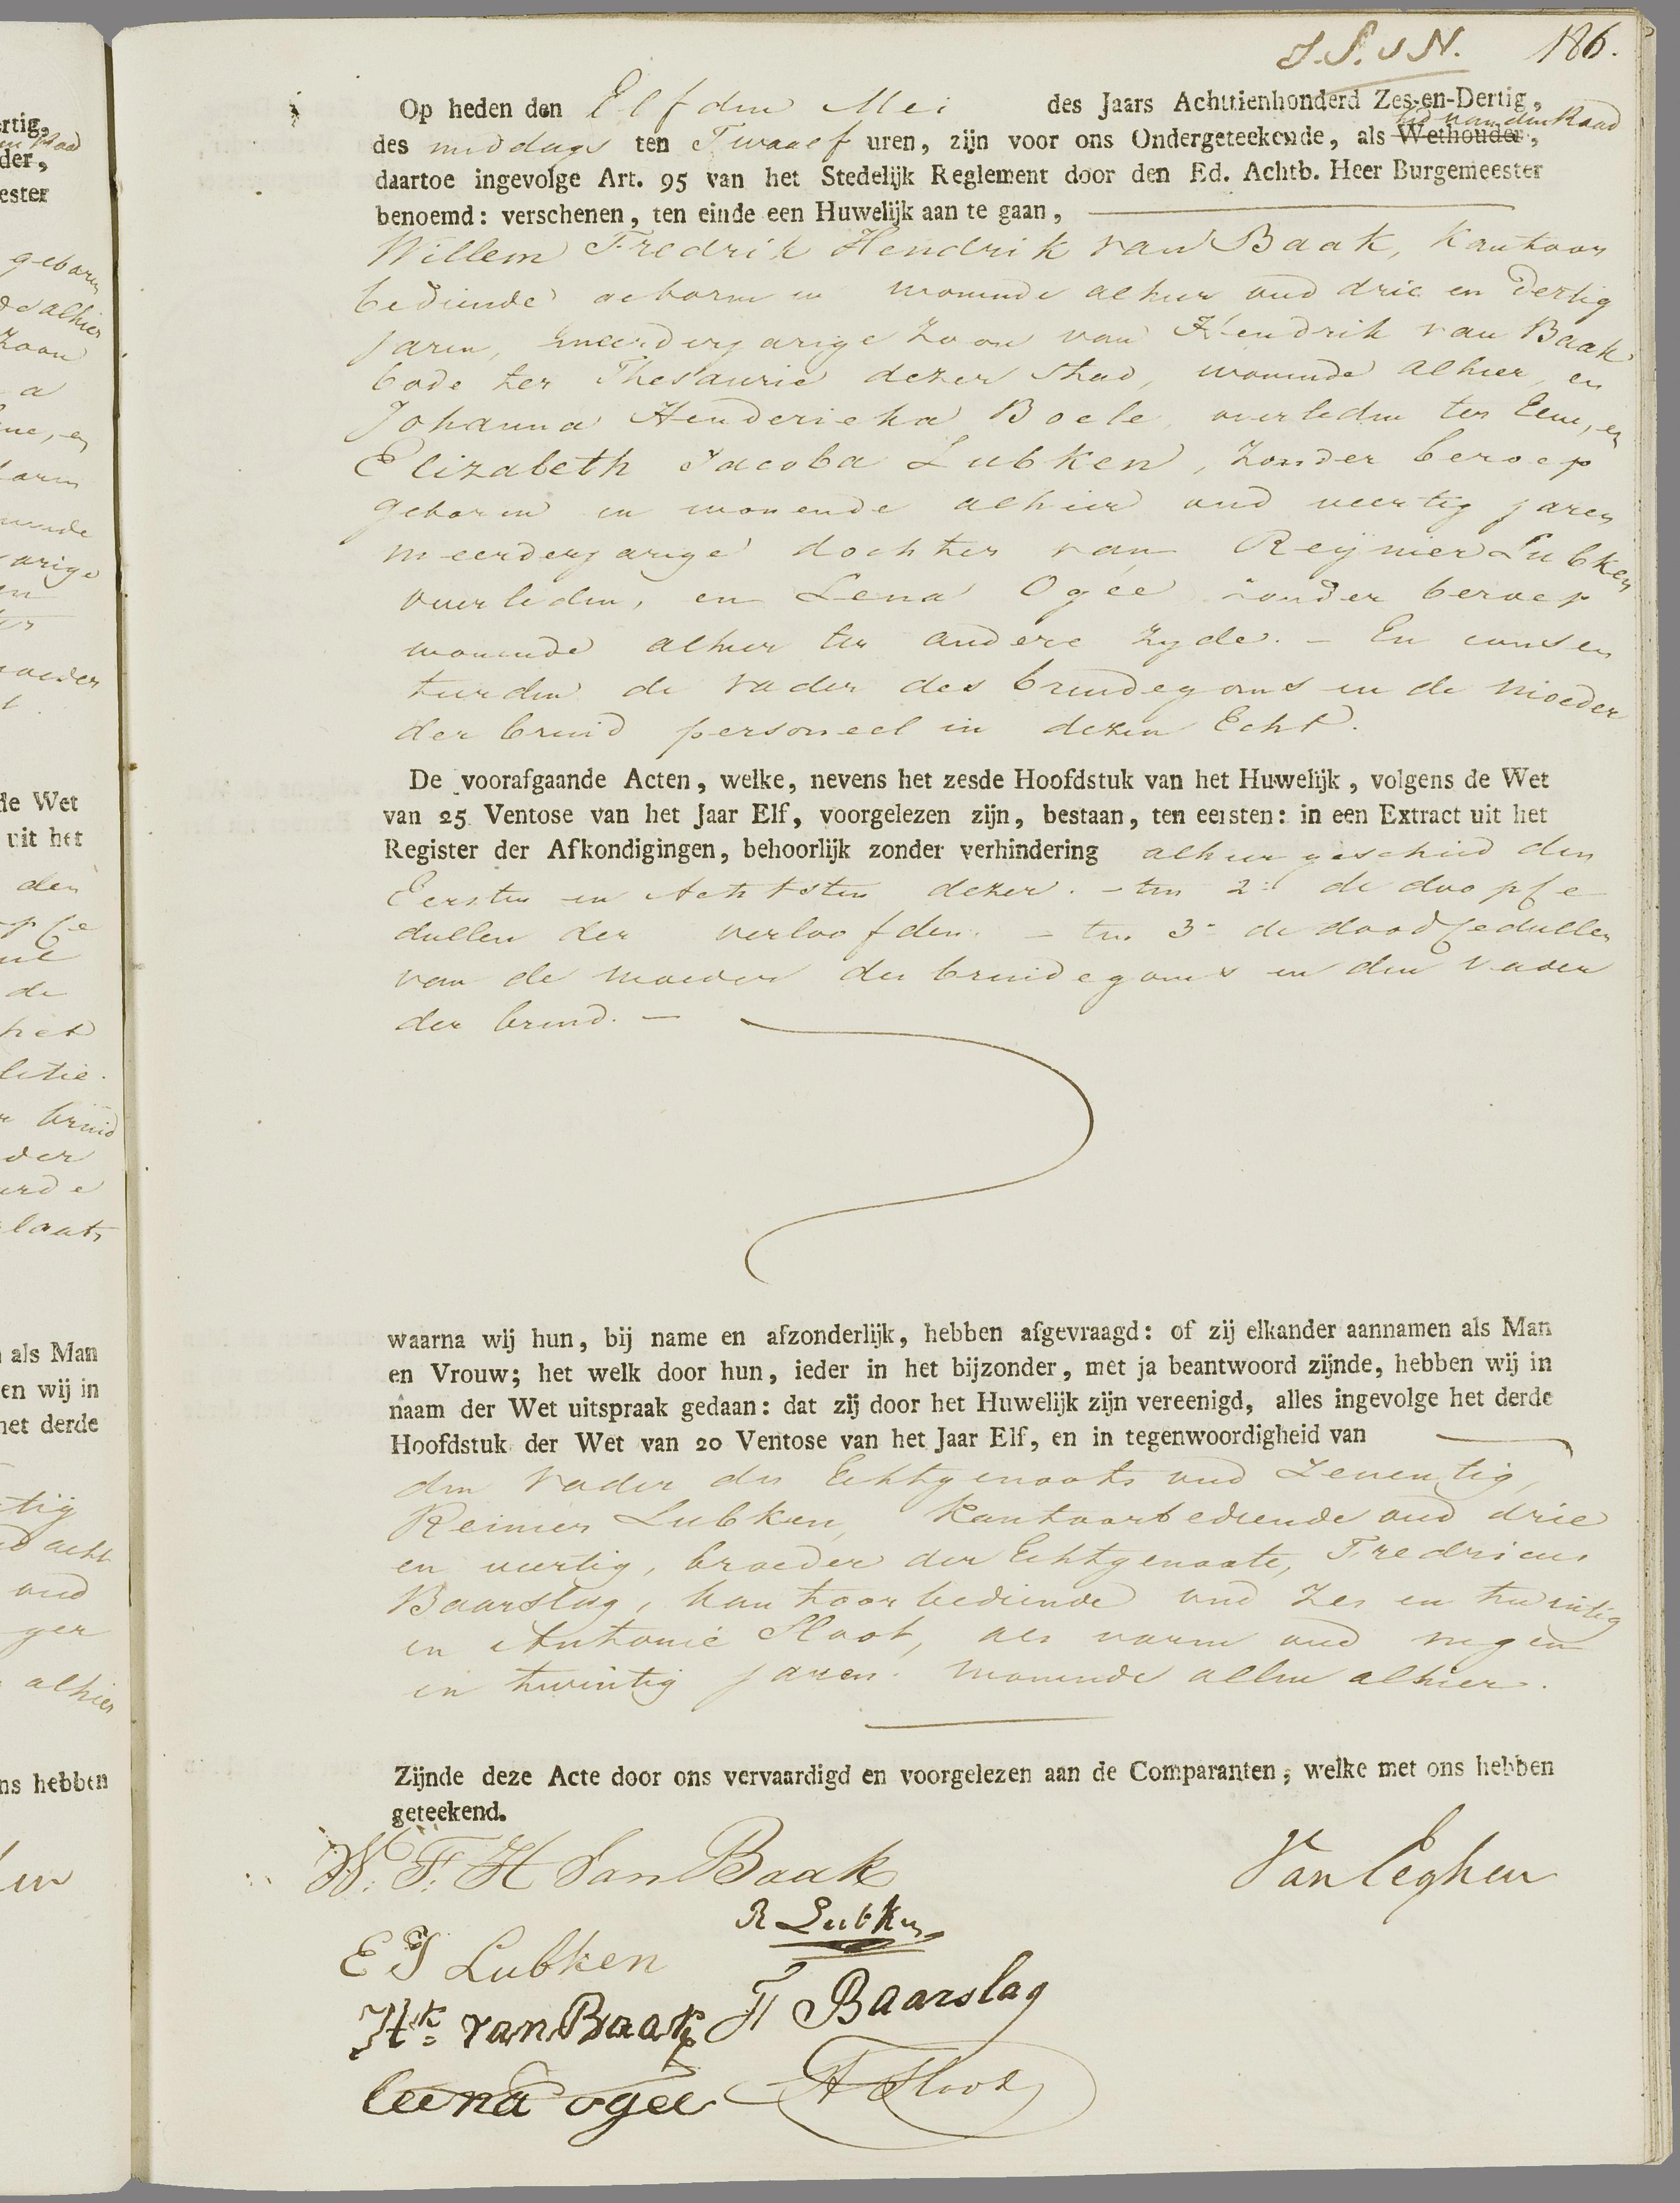 J.S. v N. 186.
Op heden den Elfden Mei des Jaars Achttienhonderd Zes-en-Dertig,
lid van den Raad
des middags ten Twaalf uren, zijn voor ons Ondergeteekende, als Wethouder,
daartoe ingevolge Art. 95 van het Stedelijk Reglement door den Ed. Achtb. Heer Burgemeester
benoemd: verschenen, ten einde een Huwelijk aan te gaan,
Willem Fredrik Hendrik van Baak, Kantoor
bediende geboren en wonende alhier oud drie en dertig
jaren, meerderjarige Zoon van Hendrik van Baak
bode ter Thesaurie dezer Stad, wonende alhier, en
Johanna Henderieka Boele, overleden ter Eene, en
Elizabeth Jacoba Lubken, Zonder beroep
geboren en wonende alhier oud veertig jaren
meerderjarige dochter van Reijnier Lubken
overleden, en Lena Ogée zonder beroep
wonende alhier ter andere zyde. - En consen
teerden de vader des bruidegoms en de Moeder
der bruid personeel in dezen Echt.
De voorafgaande Acten, welke, nevens het zesde Hoofdstuk van het Huwelijk, volgens de Wet
van 25 Ventose van het Jaar Elf, voorgelezen zijn, bestaan, ten eersten: in een Extract uit het
Register der Afkondigingen, behoorlijk zonder verhindering alhier geschied den
Eersten en Achtsten dezer. - ten 2e de doopce
dullen der verloofden. - ten 3e de doodcedullen
van de moeder des bruidegoms en den vader
der bruid. -
waarna wij hun, bij name en afzonderlijk, hebben afgevraagd: of zij elkander aannamen als Man
en Vrouw; het welk door hun, ieder in het bijzonder, met ja beantwoord zijnde, hebben wij in
naam der Wet uitspraak gedaan: dat zij door het Huwelijk zijn vereenigd, alles ingevolge het derde
Hoofdstuk der Wet van 20 Ventose van het Jaar Elf, en in tegenwoordigheid van
den Vader des Echtgenoots oud Zeventig,
Reinier Lubken, Kantoorbediende oud drie
en veertig, broeder der Echtgenoote, Fredricus
Baarslag, kantoorbediende oud Zes en twintig
en Antonie Sloot, als voren oud negen
en twintig jaren. wonende allen alhier.
Zijnde deze Acte door ons vervaardigd en voorgelezen aan de Comparanten, welke met ons hebben
geteekend.
W. F. H Van Baak
Van Eeghen
R Lubken
E J Lubken
Hk van Baak
F Baarslag
leena ogee
A Sloot